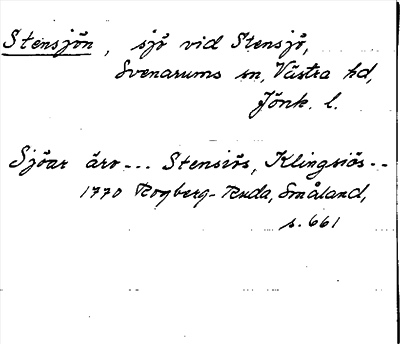 Stensjön, sjö vid Stensjö,
Svenarums sn, Västra hd,
Jönk. l.
Sjöar äro... Stensiös, Klingsiös..
1770 Rogberg-Ruda, Småland,
s. 661